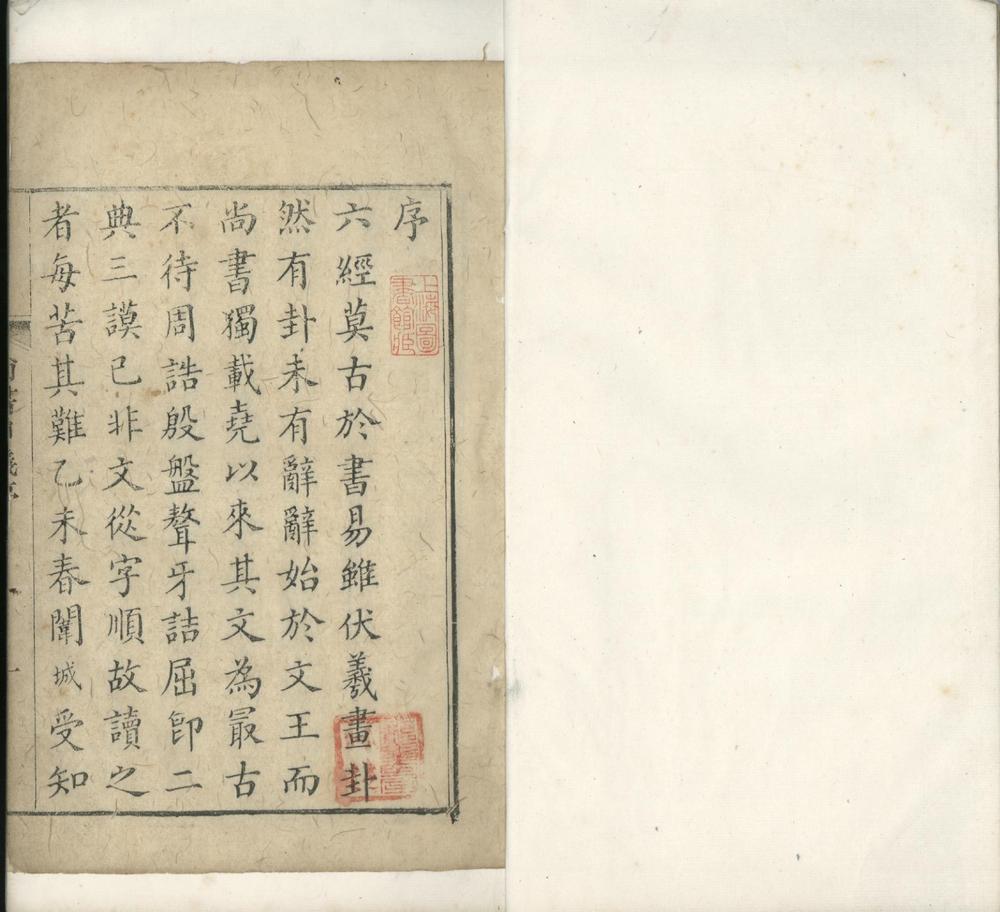 序
六經莫古於書易雖伏羲畫卦
然有卦未有辭辭始於文王而
尚書獨載堯以來其文為冣古
不待周誥殷盤聱牙詰屈卽二
典三謨已非文從字順故讀之
者每苦其難乙未春闈城受知
上海圖書館臧